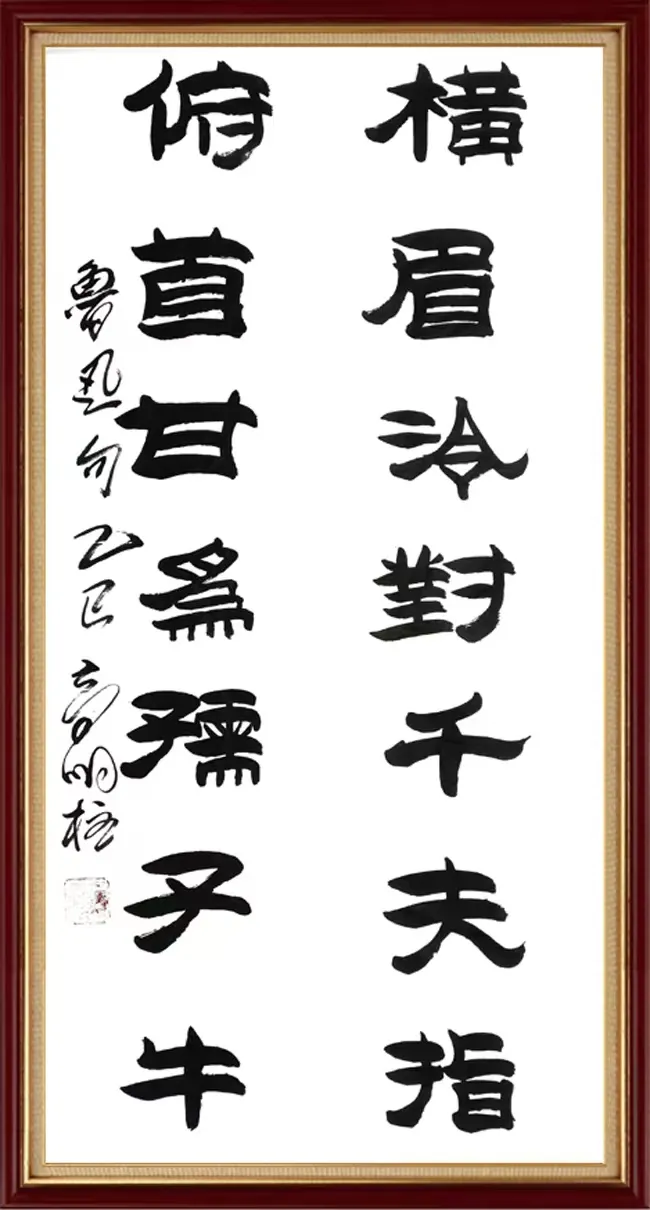 横眉冷對千夫指
俯首甘爲孺子牛
魯迅句乙巳高明柱